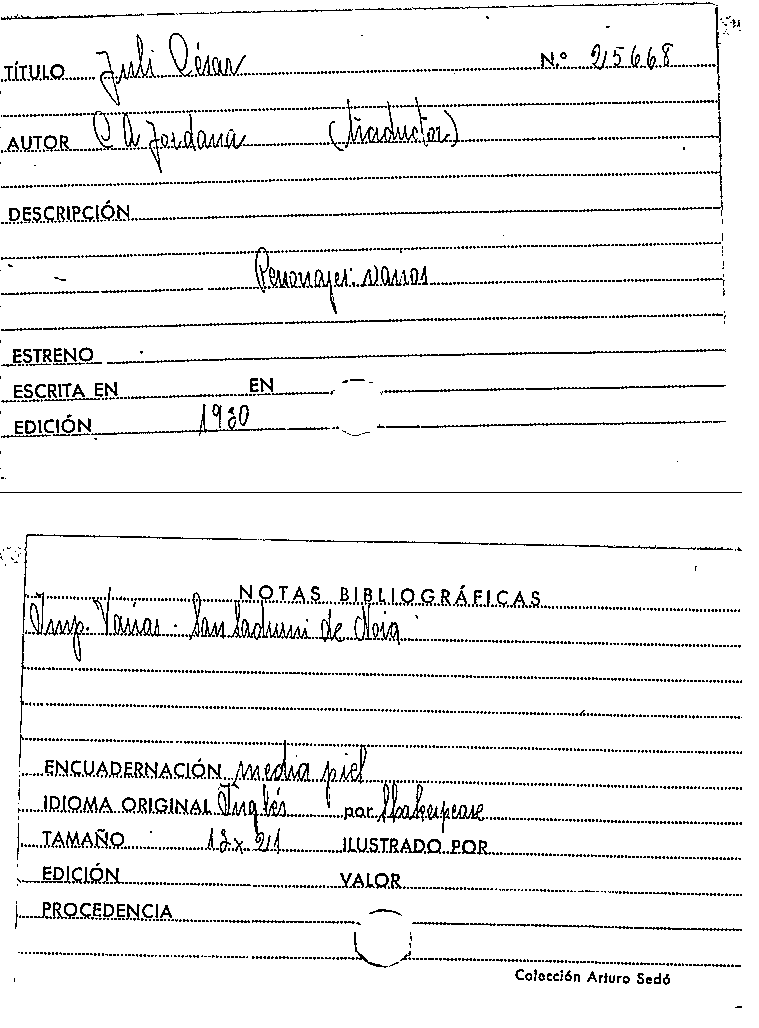 TÍTULO Juli César N.º 25668
AUTOR C A Jordana (traductor)
DESCRIPCIÓN
Personajes: varios
ESTRENO
ESCRITA EN EN
EDICIÓN 1930
NOTAS BIBLIOGRÁFICAS
Imp. Varias - San Sadurni de Noia
ENCUADERNACIÓN media piel
IDIOMA ORIGINAL Inglés por Shakespeare
TAMAÑO ILUSTRADO POR
EDICIÓN VALOR
PROCEDENCIA
Colección Arturo Sedó